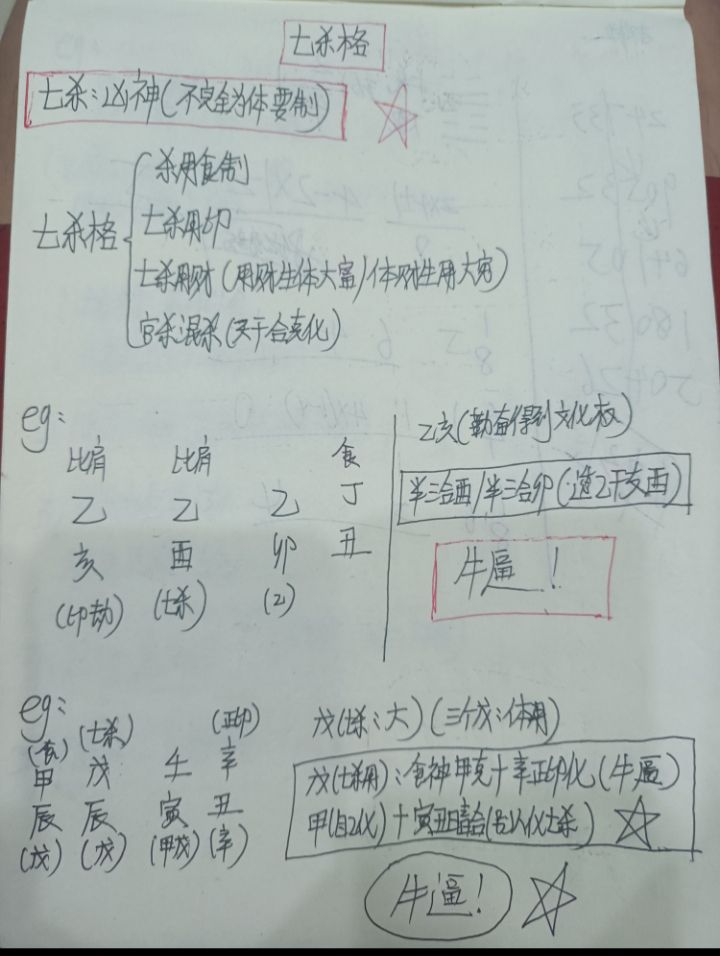 七杀格
七杀:凶神(不完全为体要制)
七杀格
杀用食制
七杀用印
七杀用财(用财生体大富/体财生用大穷)
官杀混杀(天干合克化)
eg:
比肩 比肩 食
乙 乙 乙 丁
亥 酉 卯 丑
(印劫) (七杀) (乙)
乙亥(勤奋得到文化权)
半三合酉/半三合卯(造乙干支酉)
牛逼!
eg:
(食) (七杀) (正印)
甲 戊 壬 辛
辰 辰 寅 丑
(戊) (戊) (甲戊) (辛)
戊(七杀:大)(三个戊:体用)
戊(七杀用):食神甲克十辛正印化(牛逼)
甲(自化)十寅丑暗合(化七杀)
牛逼!